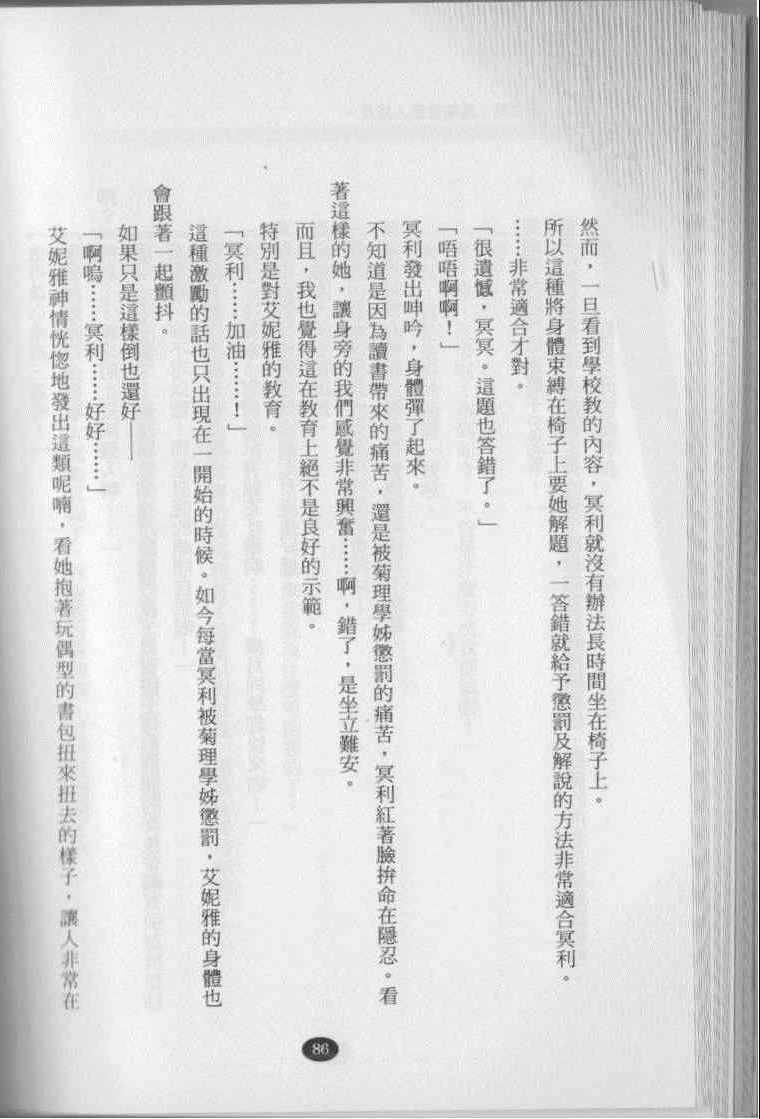 然而，一旦看到學校教的內容，冥利就沒有辦法長時間坐在椅子上。
所以這種將身體束縛在椅子上要她解題，一答錯就給予懲罰及解說的方法非常適合冥利。
……非常適合才對。
「很遺憾，冥冥。這題也答錯了。」
「唔唔啊啊！」
冥利發出呻吟，身體彈了起來。
不知道是因為讀書帶來的痛苦，還是被菊理學姊懲罰的痛苦，冥利紅著臉拚命在隱忍。看
著這樣的她，讓身旁的我們感覺非常興奮……啊，錯了，是坐立難安。
而且，我也覺得這在教育上絕不是良好的示範。
特別是對艾妮雅的教育。
「冥利……加油……！」
這種激勵的話也只出現在一開始的時候。如今每當冥利被菊理學姊懲罰，艾妮雅的身體也
會跟著一起顫抖。
如果只是這樣倒也還好——
「啊嗚……冥利……好好……」
艾妮雅神情恍惚地發出這類呢喃，看她抱著玩偶型的書包扭來扭去的樣子，讓人非常在
86